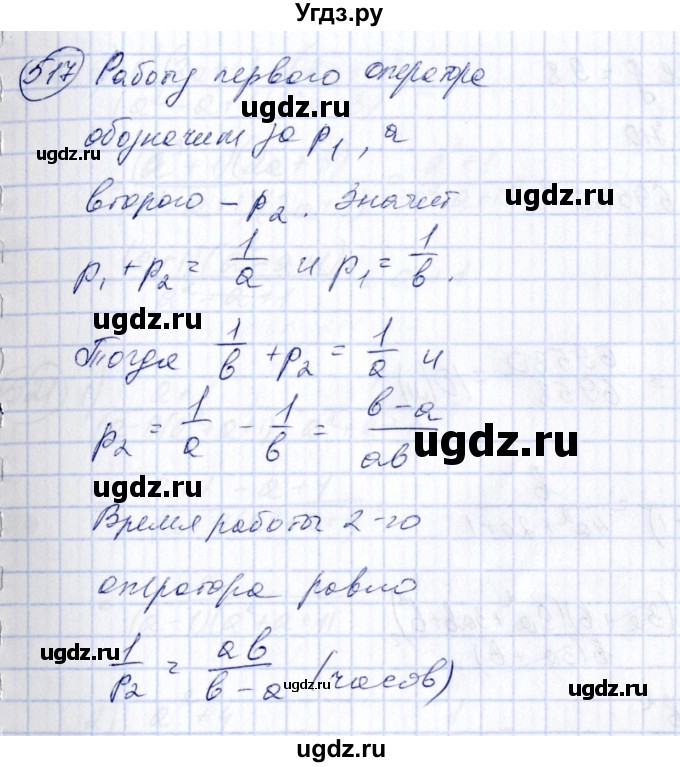 Угдз.ру
517 Работу первого оператора
ugdz.ru
обозначим за p₁, а
ugdz.ru ugdz.ru
второго – p₂. Значит
ugdz.ru
p₁ + p₂ = 1/a и p₁ = 1/b.
ugdz.ru
Тогда 1/b + p₂ = 1/a и
p₂ = 1/a - 1/b = b-a/ab
ugdz.ru
ugdz.ru
Время работы 2-го
ugdz.ru
оператора равно
ugdz.ru
1/p₂ = ab/b-a (часов)
ugdz.ru
ugdz.ru
ugdz.ru